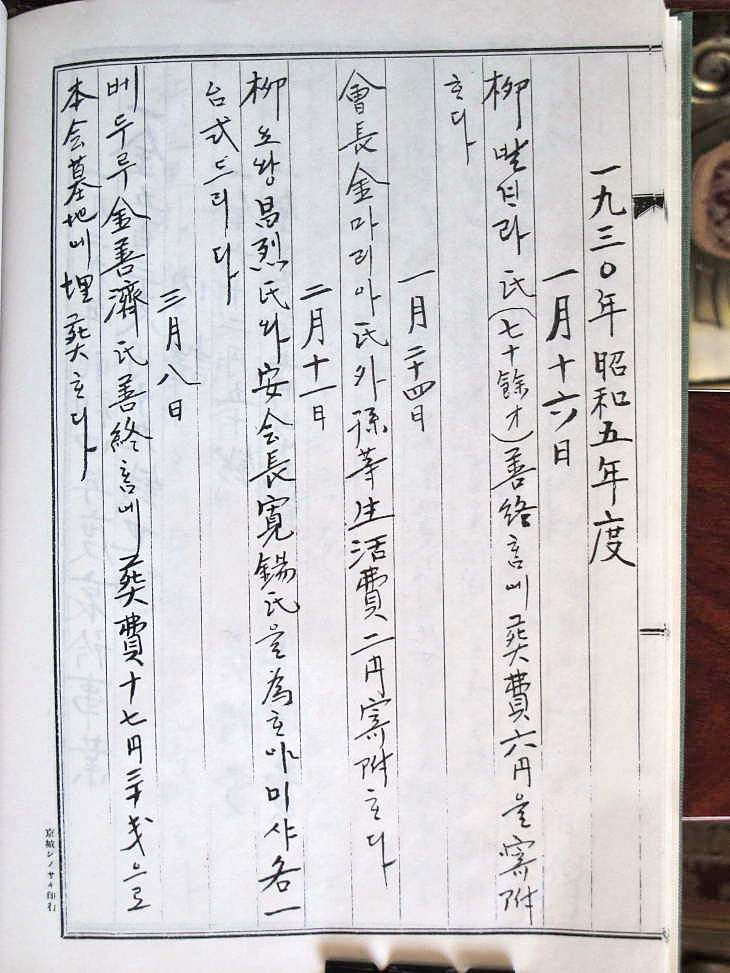 一九三〇年 昭和五年度
一月十六日
柳 발
라 氏(七十餘才)善終 에 葬費六円을 寄附
하다
一月二十四日
會長金마리아氏外孫等生活費二円寄附하다
二月十一日
柳요왕昌烈氏와 安会長寬錫氏을 為하야 미사各一
台式드리다
三月八日
베두루金善濟氏善終 에 葬費十七円三十戋으로
本会墓地에 埋葬하다